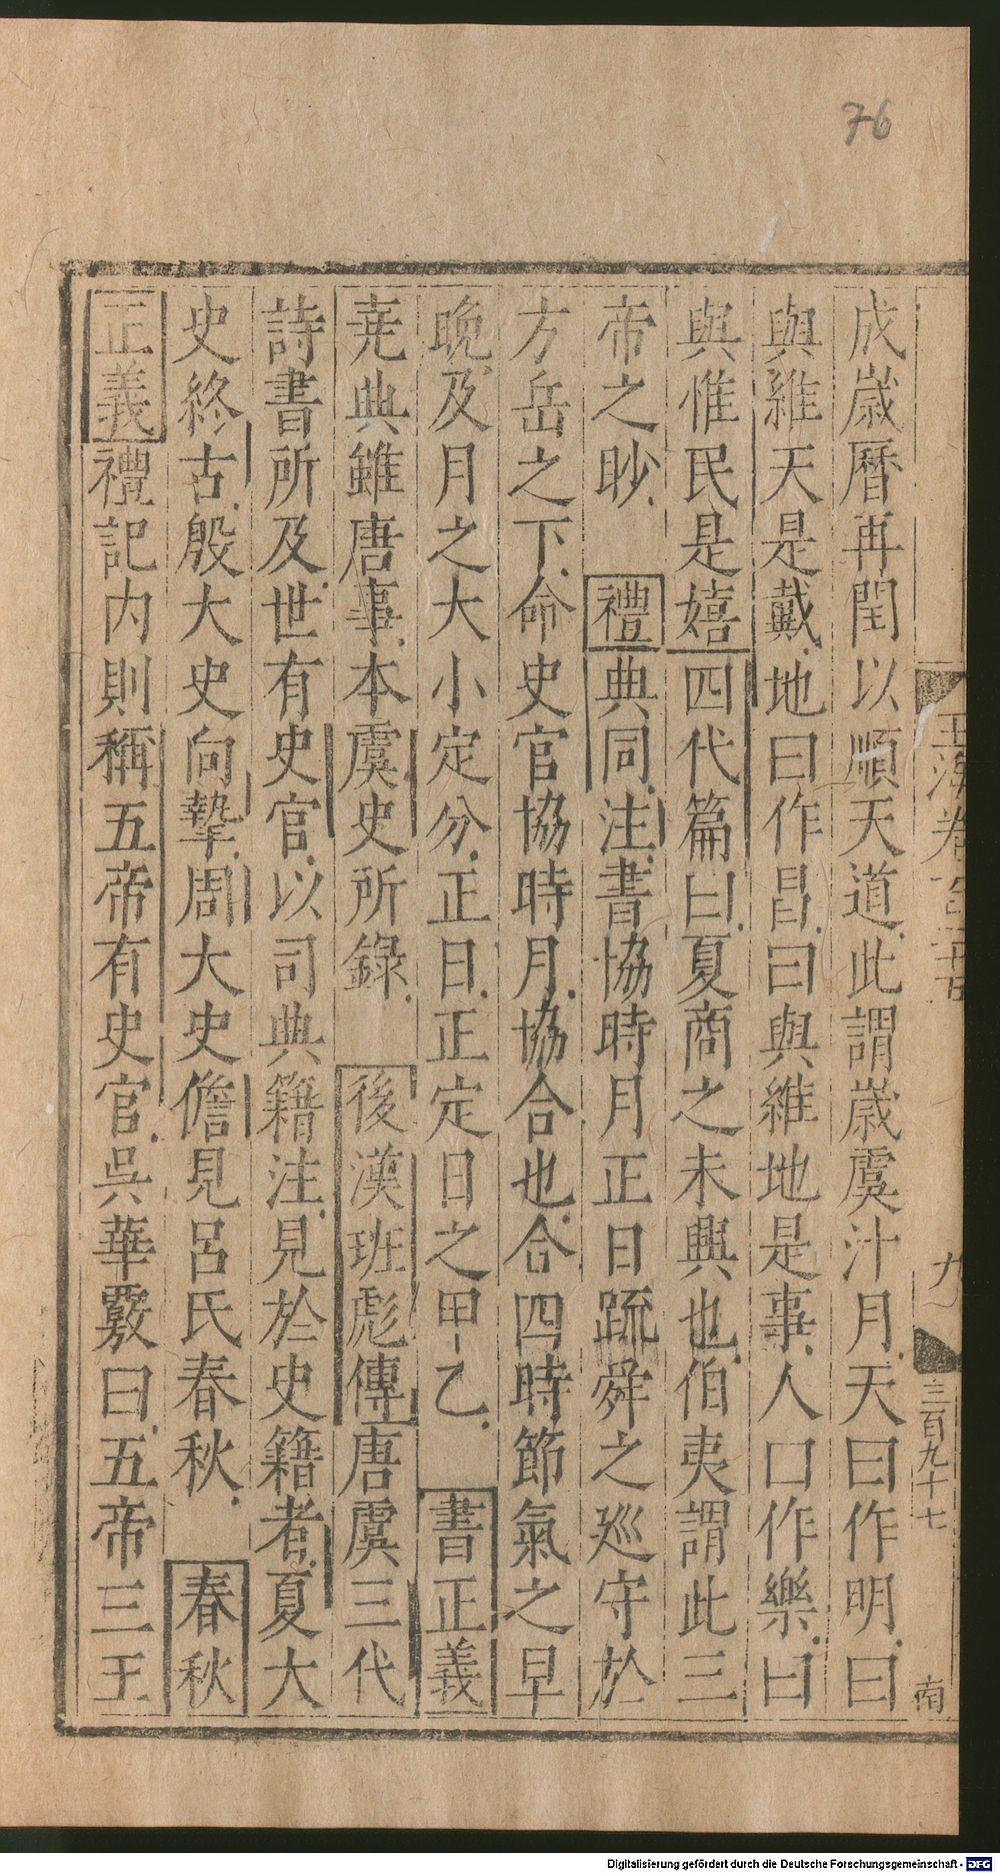 76
成歲曆再閏以順天道此謂歲虞汁月天曰作明曰
與維天是戴地曰作昌曰與維地是事人口作樂曰
與惟民是嬉四代篇曰夏商之未興也伯夷謂此三
帝之眇禮典同注書協時月正日疏舜之巡守於
方岳之下命史官協時月協合也合四時節氣之早
晚及月之大小定分正日正定日之甲乙書正義
尭典雖唐事本虞史所錄後漢班彪傳唐虞三代
詩書所及世有史官以司典籍注見於史籍者夏大
史終古殷大史向摯周大史儋見呂氏春秋春秋
正義禮記内則稱五帝有史官吳華覈曰五帝三王
玉海卷
九
三百九十七
南
Digitalisierung gefördert durch die Deutsche Forschungsgemeinschaft - DFG